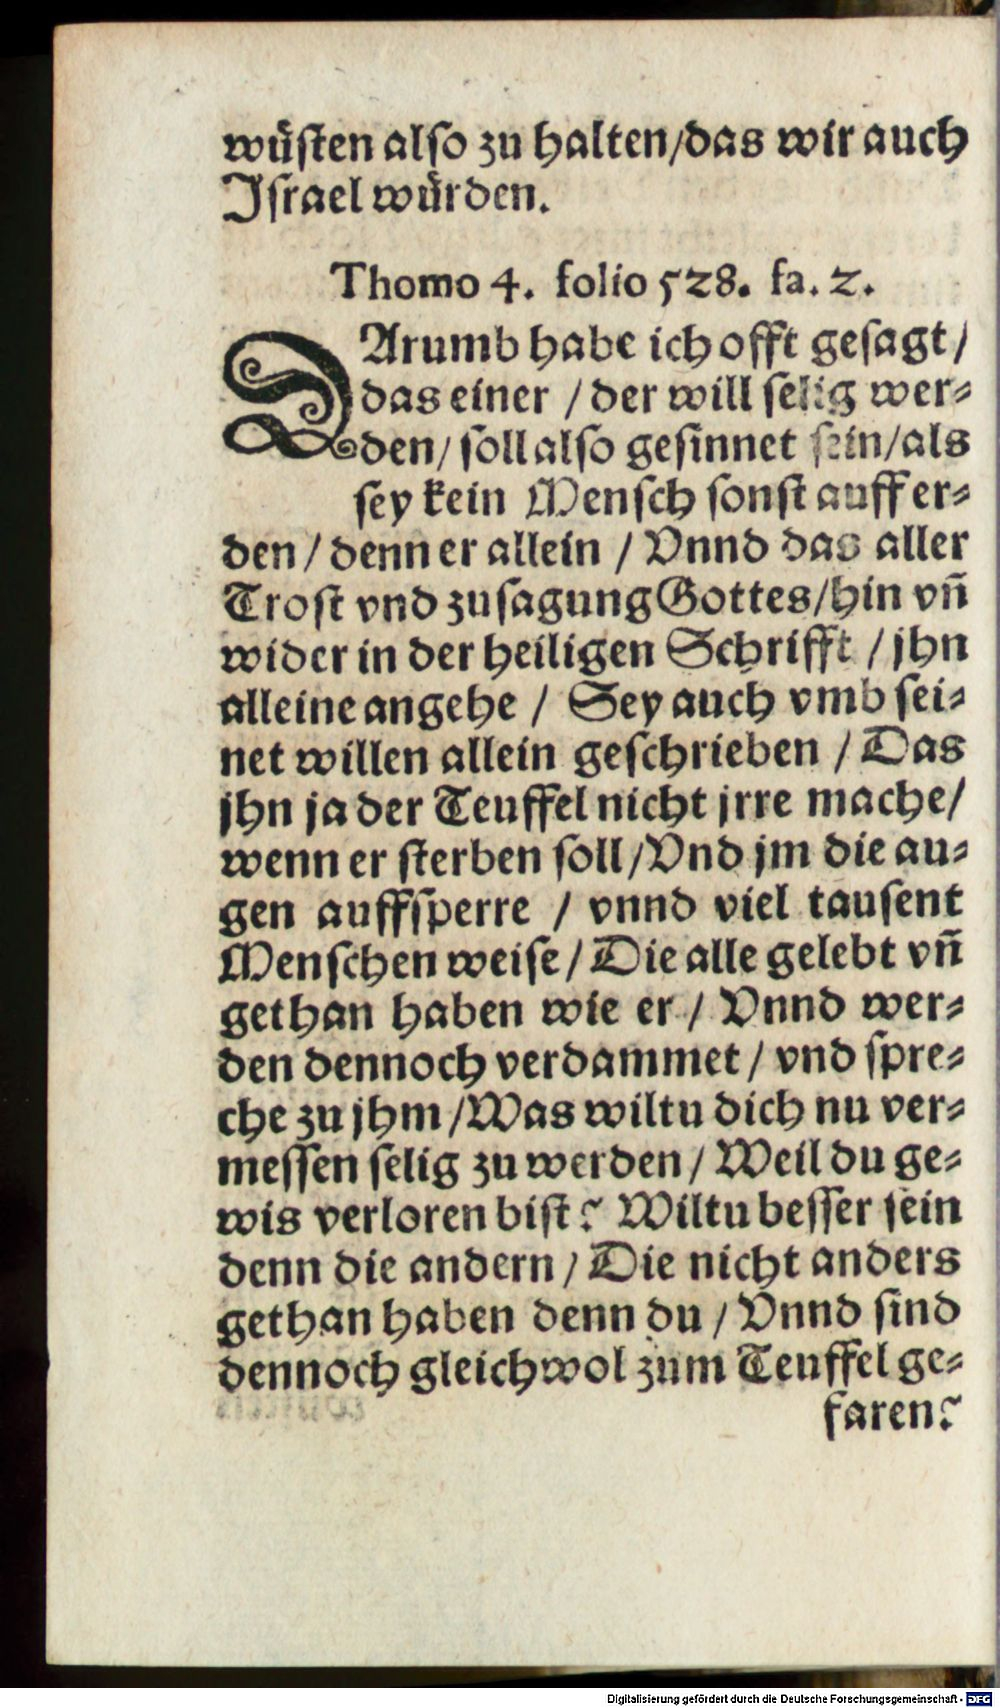 wüſten alſo zu halten/das wir auch
Iſrael würden.
Thomo 4. folio 528. fa. 2.
DArumb habe ich offt geſagt/
das einer / der will ſelig wer⸗
den/ ſoll alſo geſinnet ſein/als
ſey kein Menſch ſonſt auff er⸗
den / denn er allein / Vnnd das aller
Troſt vnd zuſagung Gottes/hin vn̄
wider in der heiligen Schrifft / jhn
alleine angehe / Sey auch vmb ſei⸗
net willen allein geſchrieben / Das
jhn ja der Teuffel nicht jrre mache/
wenn er ſterben ſoll/Vnd jm die au⸗
gen auffſperre / vnnd viel tauſent
Menſchen weiſe/ Die alle gelebt vn̄
gethan haben wie er / Vnnd wer⸗
den dennoch verdammet / vnd ſpre⸗
che zu jhm /Was wiltu dich nu ver⸗
meſſen ſelig zu werden/ Weil du ge⸗
wis verloren biſt? Wiltu beſſer ſein
denn die andern / Die nicht anders
gethan haben denn du / Vnnd ſind
dennoch gleichwol zum Teuffel ge⸗
faren?
Digitalisierung gefördert durch die Deutsche Forschungsgemeinschaft - DFG